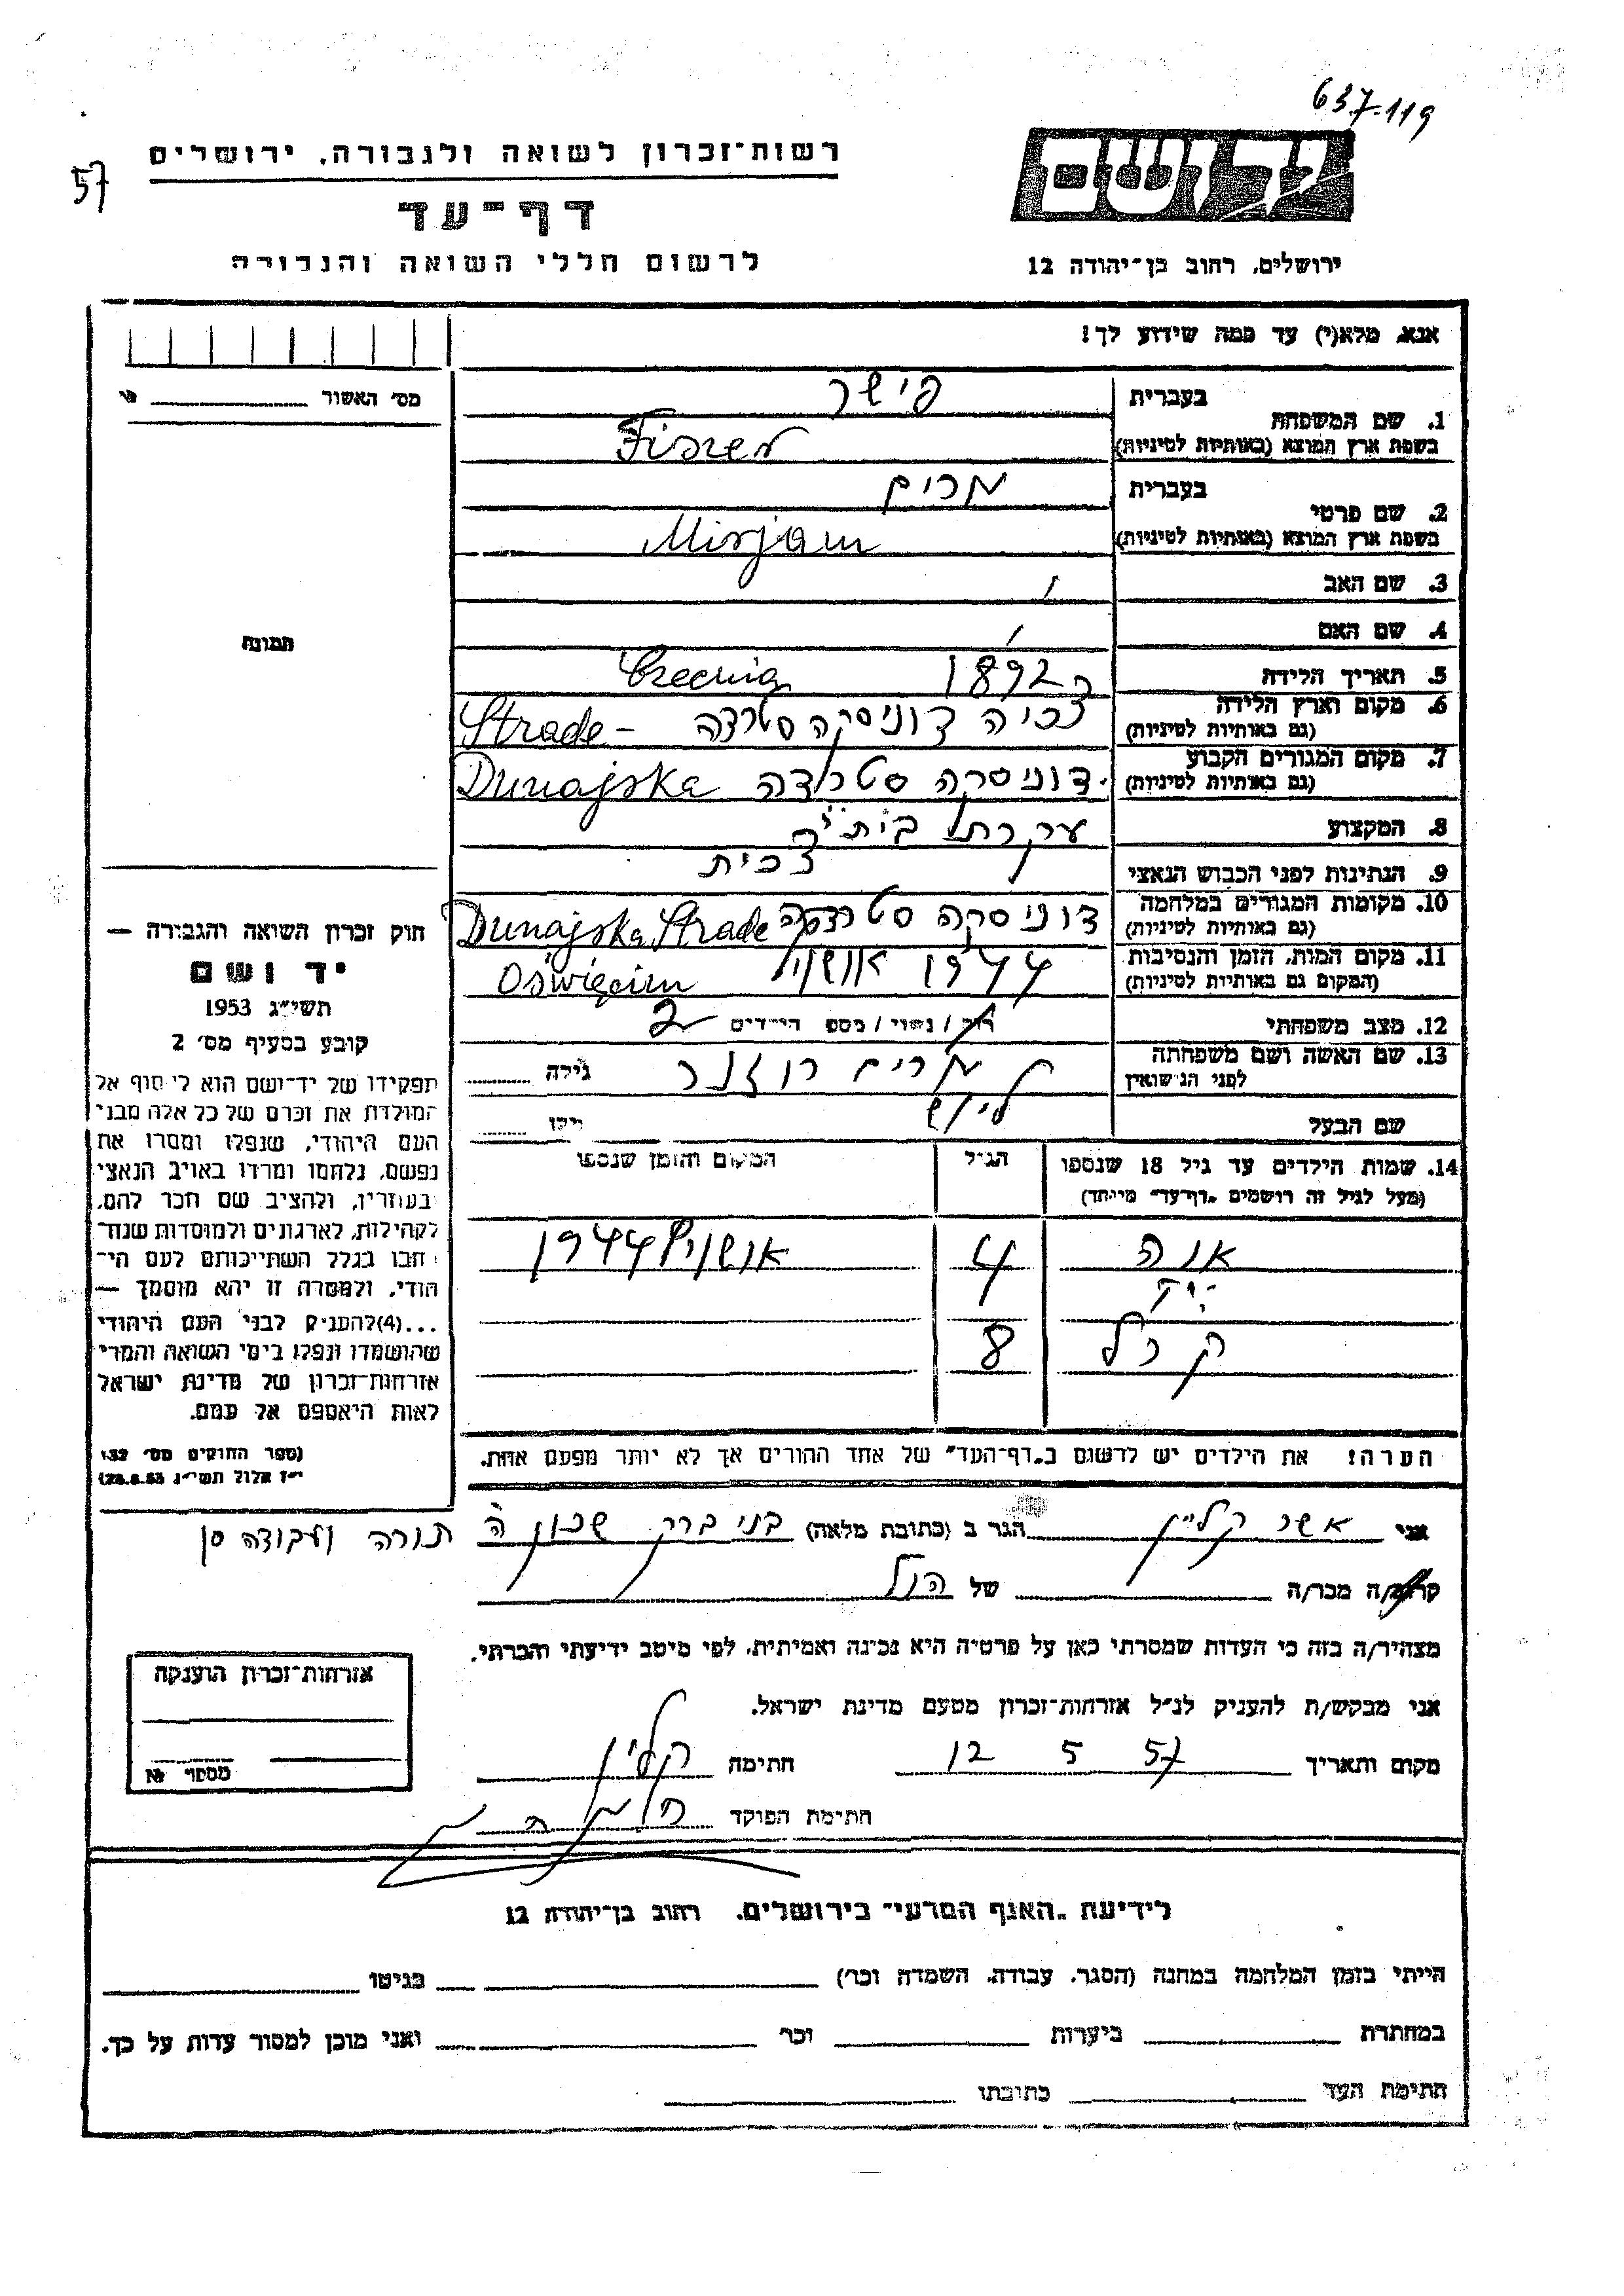 637-119
57
רשות־זכרון לשואה ולגבורה, ירושלים
דף־עד
לרשום חללי השואה והגבורה
ירושלים, רחוב בן־יהודה 12
אנא, מלא(י) עד כמה שידוע לך!
מס' האשור
בעברית פישר
1. שם המשפחה
בשפת ארץ המוצא (באותיות לטיניות) Fiszer
בעברית מרים
2. שם פרטי
בשפת ארץ המוצא (באותיות לטיניות) Mirjam
3. שם האב
4. שם האם
תמונה
5. תאריך הלידה 1892
6. מקום וארץ הלידה דוניסקה סטרדה Strade -
(גם באותיות לטיניות)
7. מקום המגורים הקבוע דוניסקה סטרדה Dunajska
(גם באותיות לטיניות)
8. המקצוע עקרת בית
9. הנתינות לפני הכבוש הנאצי צכית
10. מקומות המגורים במלחמה דוניסקה סטרדה Dunajska Strade
(גם באותיות לטיניות)
11. מקום המות, הזמן והנסיבות 1944 אושויץ Oświęcim
(המקום גם באותיות לטיניות)
12. מצב משפחתי רוק / נשוי / מספר הילדים 2
13. שם האשה ושם משפחתה מרים רוזנר גילה
לפני הנישואין
שם הבעל גילו
14. שמות הילדים עד גיל 18 שנספו הגיל המקום והזמן שנספו
(מעל לגיל זה רושמים "דף־עד" מיוחד)
אנה 4 אושויץ 1944
קרל 8
הערה! את הילדים יש לרשום ב"דף־העד" של אחד ההורים אך לא יותר מפעם אחת.
חוק זכרון השואה והגבורה —
יד ושם
תשי״ג 1953
קובע בסעיף מס' 2
תפקידו של יד־ושם הוא לאסוף אל
המולדת את זכרם של כל אלה מבני
העם היהודי, שנפלו ומסרו את
נפשם, נלחמו ומרדו באויב הנאצי
ובעוזריו, ולהציב שם וזכר להם,
לקהילות, לארגונים ולמוסדות שנח־
רבו בגלל השתייכותם לעם הי־
הודי, ולמטרה זו יהא מוסמך —
...(4)להעניק לבני העם היהודי
שהושמדו ונפלו בימי השואה והמרי
אזרחות־זכרון של מדינת ישראל
לאות היאספם אל עמם.
(ספר החוקים מס' 132,
י״ז אלול תשי״ג 28.8.53)
אני אשר קליין הגר ב (כתובת מלאה) בני ברק שכון ה תורה ועבודה
קרוב/ה מכר/ה של הנ״ל
מצהיר/ה בזה כי העדות שמסרתי כאן על פרטיה היא נכונה ואמיתית, לפי מיטב ידיעתי והכרתי.
אני מבקש/ת להעניק לנ״ל אזרחות־זכרון מטעם מדינת ישראל.
מקום ותאריך 12 5 57 חתימה קליין
חתימת הפוקד
אזרחות־זכרון הוענקה
מספר №
לידיעת "האגף המדעי" בירושלים, רחוב בן־יהודה 12
הייתי בזמן המלחמה במחנה (הסגר, עבודה, השמדה וכו') בגיטו
במחתרת ביערות וכו' ואני מוכן למסור עדות על כך.
חתימת העד כתובתו